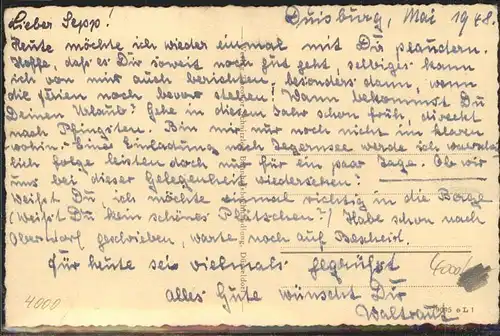 Duisburg, Mai 1948.
Lieber Sepp!
Heute möchte ich wieder einmal mit Dir plaudern.
Hoffe, daß es Dir soweit noch gut geht, selbiges kann
ich von mir auch berichten, besonders dann, wenn
die Ferien noch bevor stehen! Wann bekommst Du
Deinen Urlaub? Gehe in diesem Jahr schon früh, direkt
nach Pfingsten. Bin mir nur noch nicht im klaren
wohin. Eine Einladung nach Tegernsee werde ich
lich folge leisten doch nur für ein paar Tage. Ob wir
uns bei dieser Gelegenheit wiedersehen?
Weißt Du, ich möchte einmal richtig in die Berge
(Weißt Du kein schönes Plätzchen?) Habe schon nach
Oberstdorf geschrieben, warte noch auf Bescheid.
Für heute sei vielmals gegrüßt
Alles Gute wünscht Dir
Waltraud
4000
4000